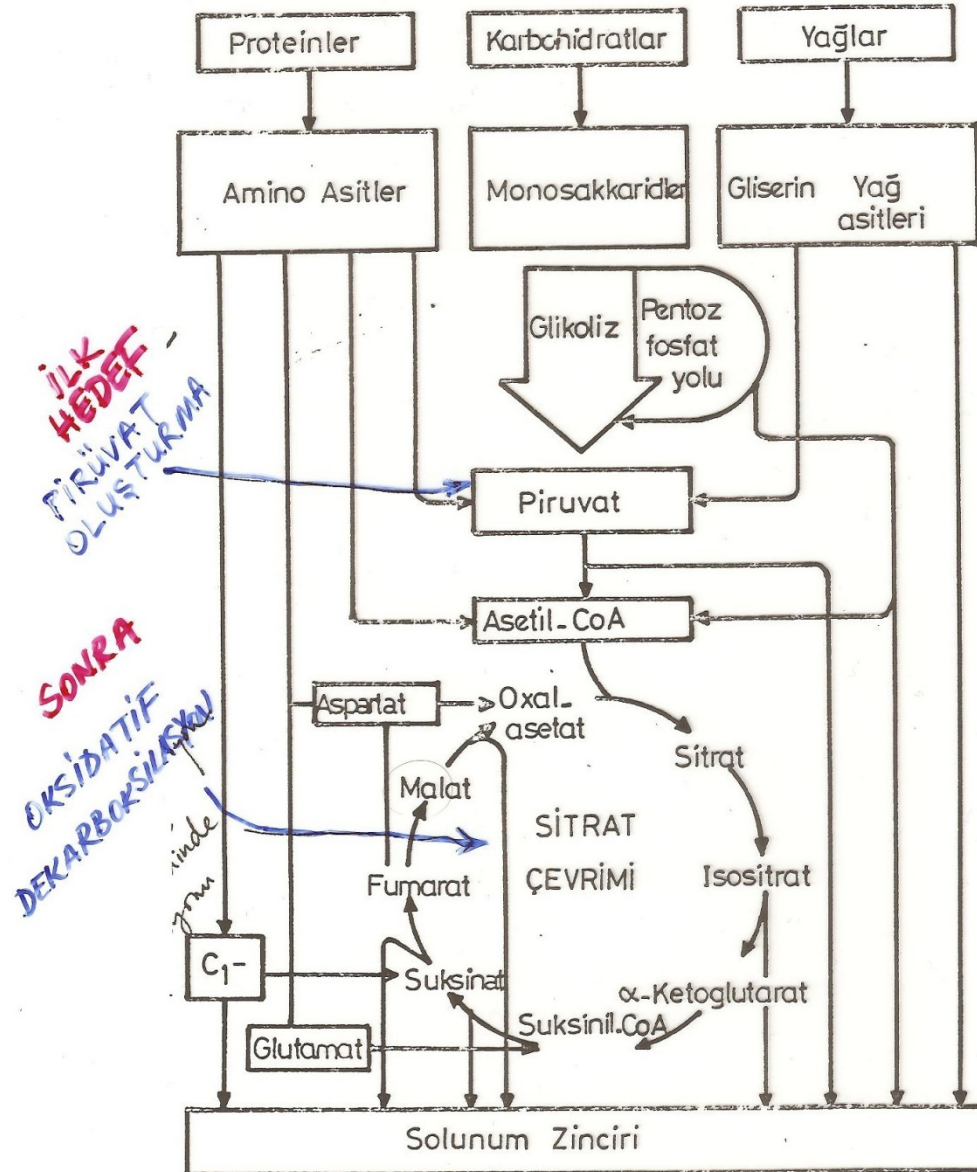 Proteinler
Karbohidratlar
Yağlar
Amino Asitler
Monosakkaridler
Gliserin Yağ
asitleri
Glikoliz
Pentoz
fosfat
yolu
İLK
HEDEF
PİRÜVAT
OLUŞTURMA
Piruvat
Asetil-CoA
SONRA
OKSİDATİF
DEKARBOKSİLASYON
Aspartat
Oxal-
asetat
Malat
Sitrat
SİTRAT
ÇEVRİMİ
Fumarat
Isositrat
C₁-
Suksinat
α-Ketoglutarat
Suksinil-CoA
Glutamat
Solunum Zinciri